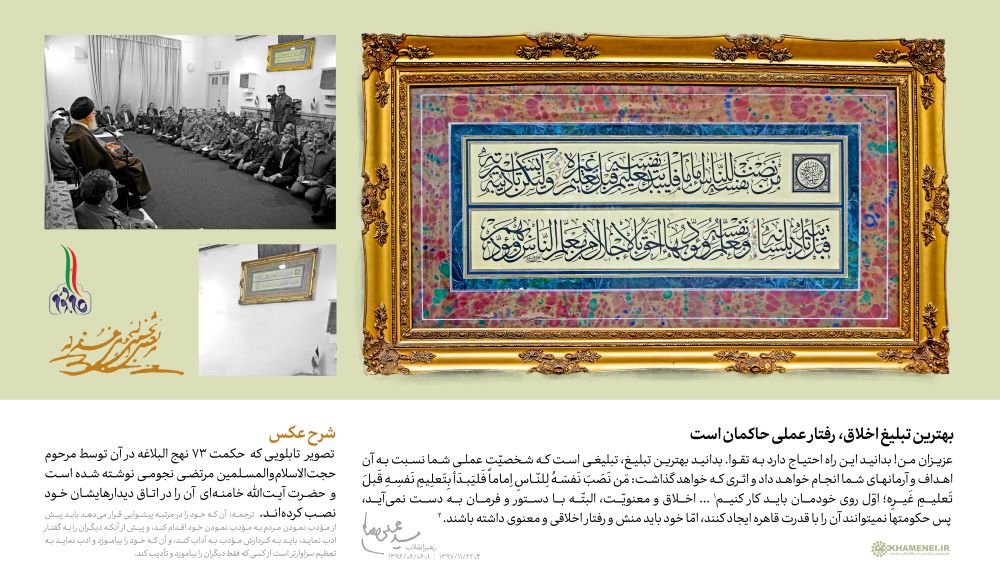 من نصب نفسه للناس اماما فليبدا بتعليم نفسه قبل تعليم غيره وليكن تاديبه بسيرته
قبل تاديبه بلسانه ومعلم نفسه ومودبها احق بالاجلال من معلم الناس ومودبهم
بهترین تبلیغ اخلاق، رفتار عملی حاکمان است
عزیزان من! بدانید این راه احتیاج دارد به تقوا. بدانید بهترین تبلیغ، تبلیغی است که شخصیّت عملی شما نسبت به آن
اهداف و آرمانهای شما انجام خواهد داد و اثری که خواهد گذاشت: مَن نَصَبَ نَفسَهُ لِلنّاسِ اِماماً فَلیَبدَأ بِتَعلیمِ نَفسِهِ قَبلَ
تَعلیمِ غَیرِه؛ اوّل روی خودمان باید کار کنیم¹ ... اخلاق و معنویّت، البتّه با دستور و فرمان به دست نمی‌آید،
پس حکومتها نمیتوانند آن را با قدرت قاهره ایجاد کنند، امّا خود باید منش و رفتار اخلاقی و معنوی داشته باشند.²
رهبر انقلاب
۱: ۱۳۹۶/۰۶/۰۶ | ۲: ۱۳۹۷/۱۱/۲۲
KHAMENEI.IR
شرح عکس
تصویر تابلویی که حکمت ۷۳ نهج البلاغه در آن توسط مرحوم
حجت‌الاسلام‌والمسلمین مرتضی نجومی نوشته شده است
و حضرت آیت‌الله خامنه‌ای آن را در اتاق دیدارهایشان خود
نصب کرده‌اند. ترجمه: آن که خود را در مرتبه پیشوایی قرار می‌دهد باید پیش
از مؤدب نمودن مردم به مؤدب نمودن خود اقدام کند، و پیش از آنکه دیگران را به گفتار
ادب نماید، باید به کردارش مؤدب به آداب کند، و آن که خود را بیاموزد و ادب نماید به
تعظیم سزاوارتر است از کسی که فقط دیگران را بیاموزد و تأدیب کند.